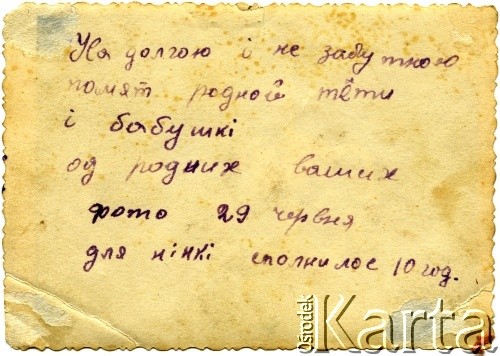 На долгою і не забутною
помят родной тёти
і бабушкі
од родних ваших
фото 29 червня
для нінкі сполнилос 10 год.
Ośrodek
Karta